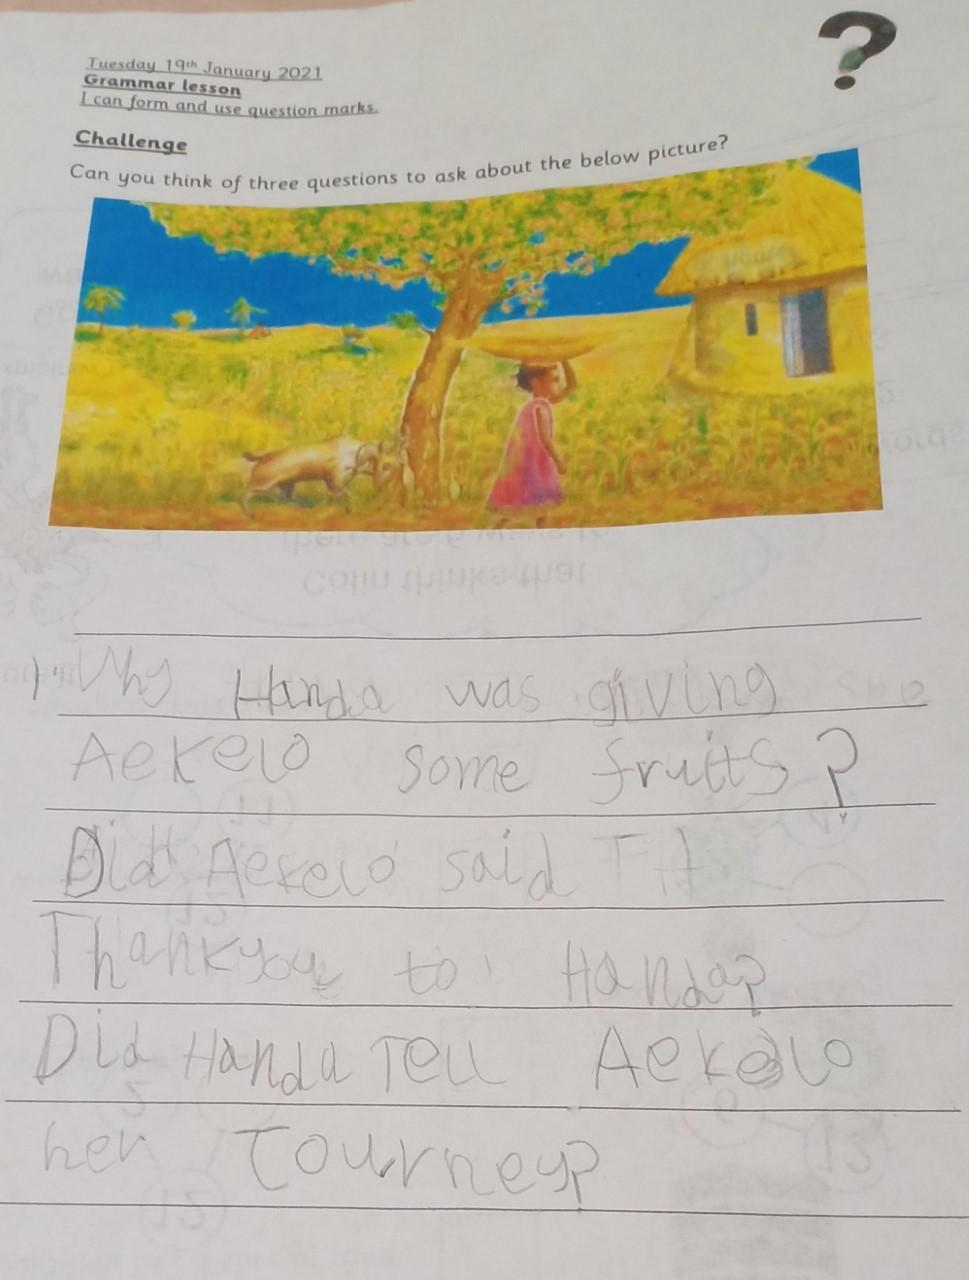 ?
Tuesday 19th January 2021
Grammar lesson
I can form and use question marks.
Challenge
Can you think of three questions to ask about the below picture?
1. Why Handa was giving she
Aekelo some fruits?
Did Aekelo said
Thankyou to Handa?
Did Handa Tell Aekelo
her Tourney?